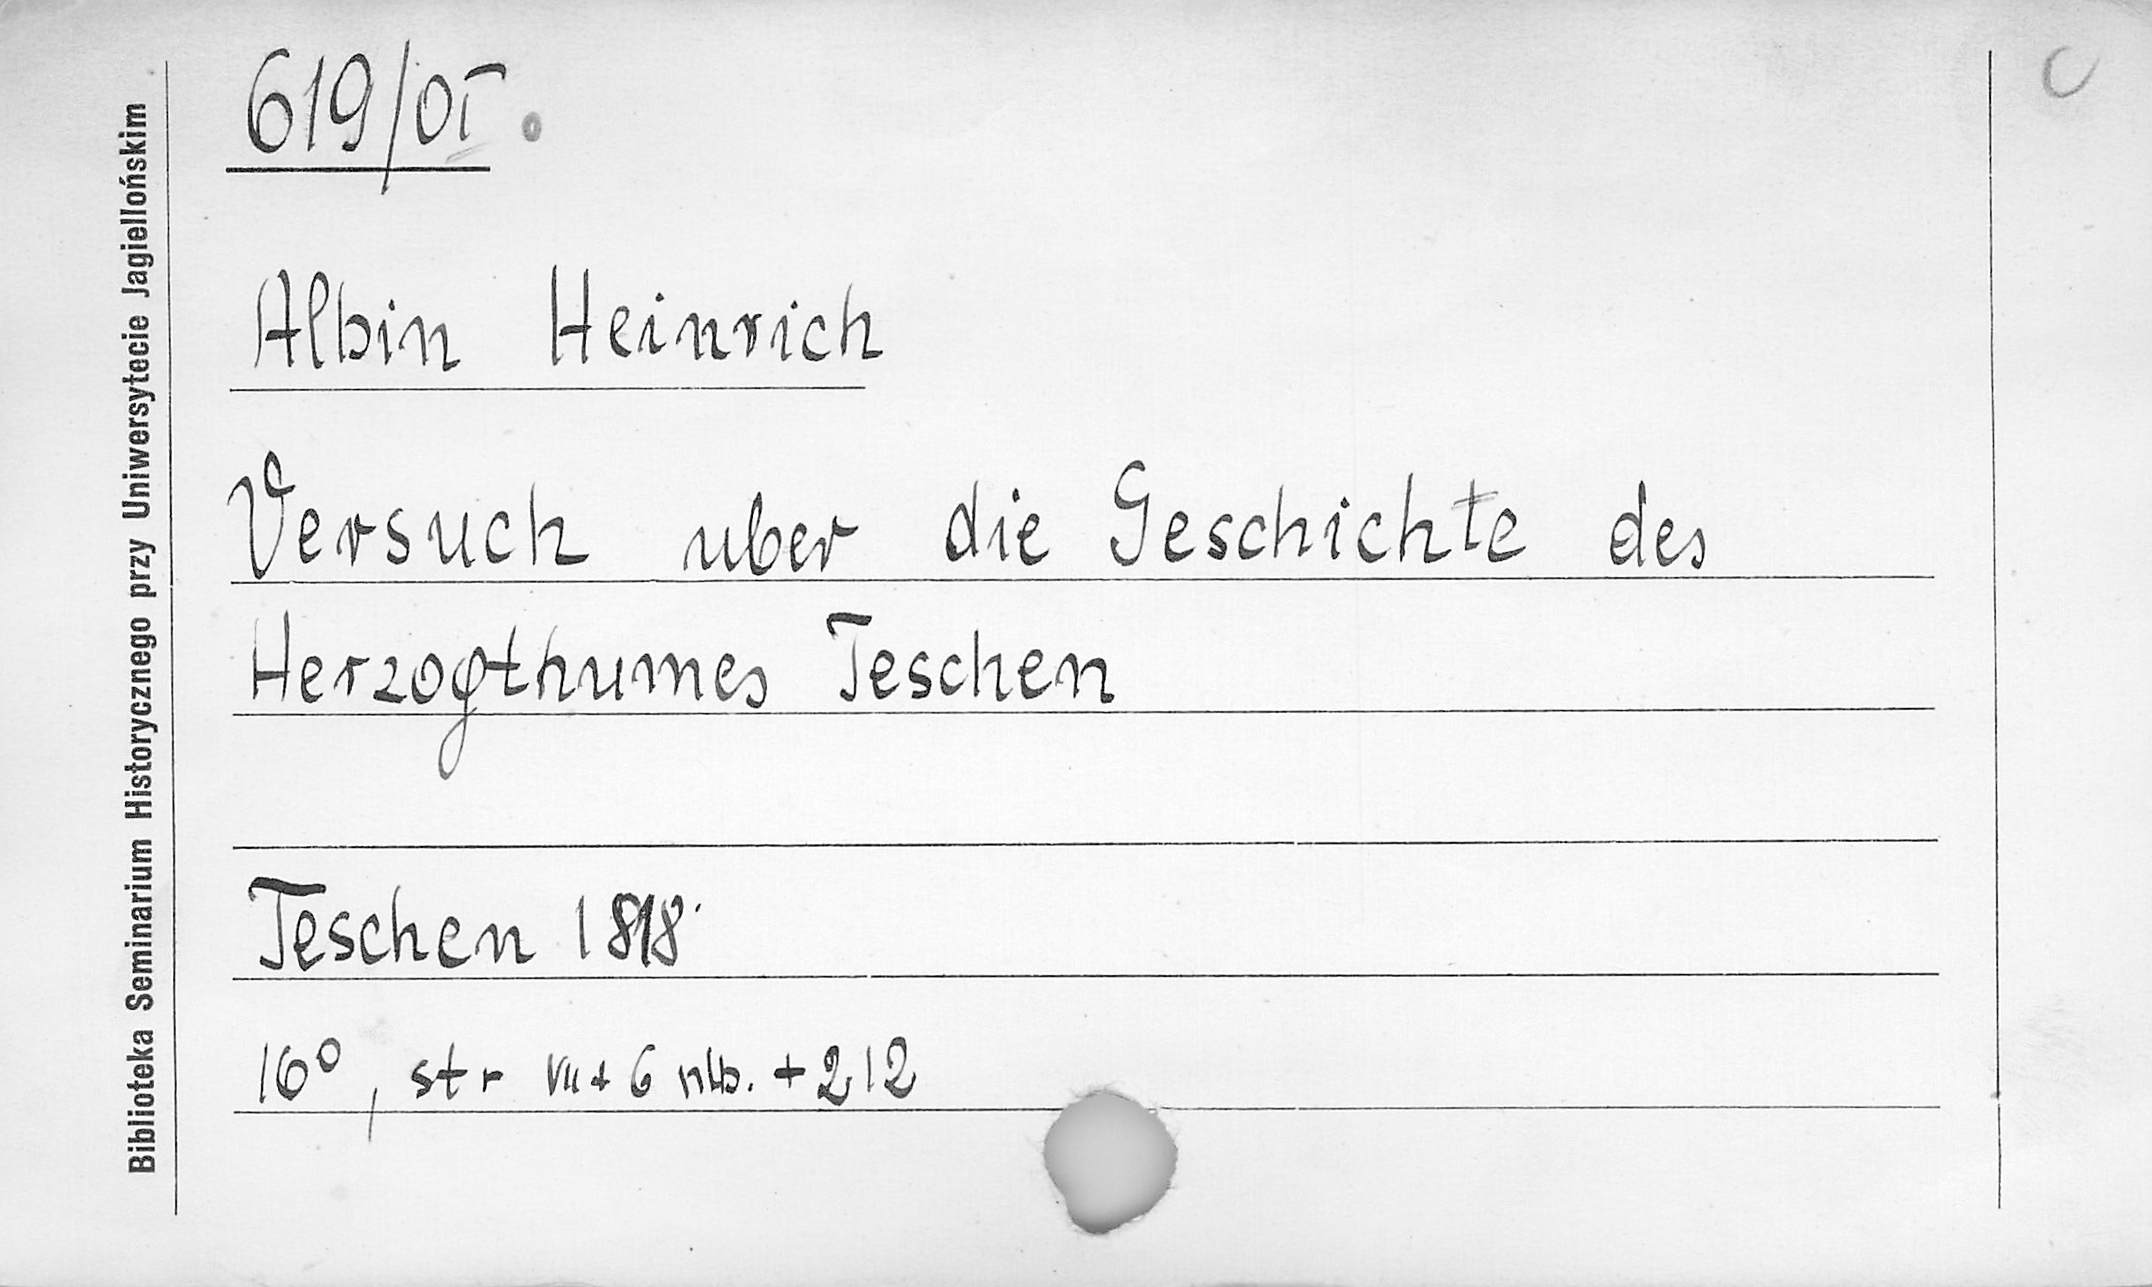 619/OT.
Albin Heinrich
Versuch uber die Geschichte des
Herzogthumes Teschen
Teschen 1818
16°, str VII + 6 nlb. + 212
Biblioteka Seminarium Historycznego przy Uniwersytecie Jagiellońskim
C